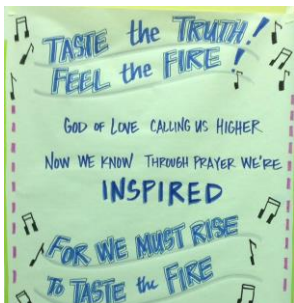 TASTE the TRUTH!
FEEL the FIRE!
GOD OF LOVE CALLING US HIGHER
NOW WE KNOW THROUGH PRAYER WE'RE
INSPIRED
FOR WE MUST RISE
TO TASTE the FIRE